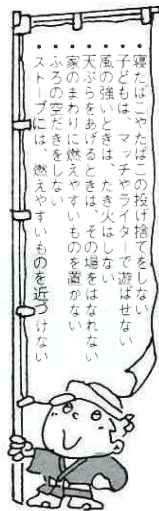 ・寝たばこやたばこの投げ捨てをしない
・子どもは、マッチやライターで遊ばせない
・風の強いときは、たき火はしない
・天ぷらをあげるときは、その場をはなれない
・家のまわりに燃えやすいものを置かない
・ふろの空だきをしない
・ストーブには、燃えやすいものを近づけない